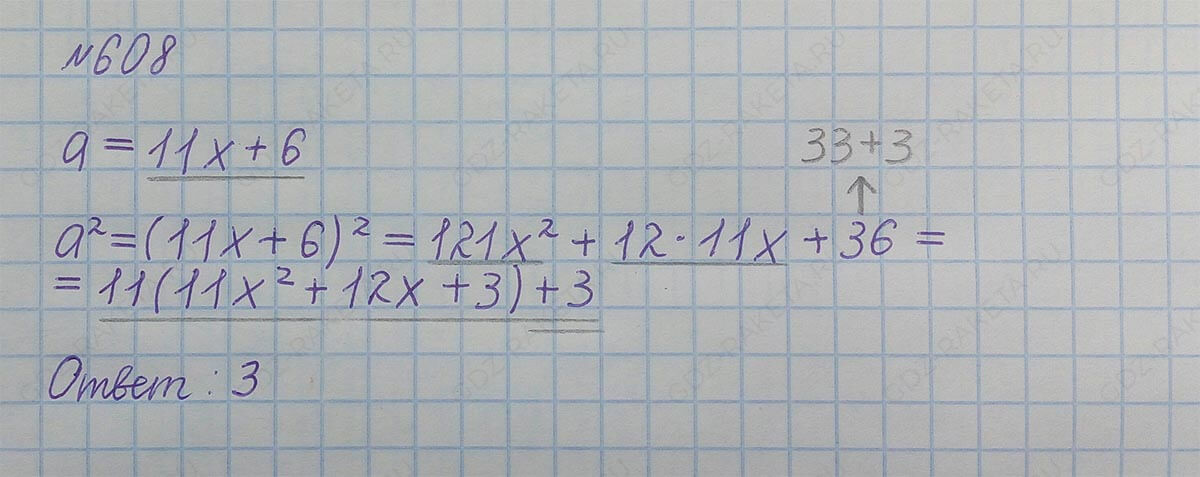 №608
a = 11x + 6
33+3
↑
a² = (11x + 6)² = 121x² + 12·11x + 36 =
= 11(11x² + 12x + 3) + 3
Ответ: 3
GDZ-RAKETA.RU